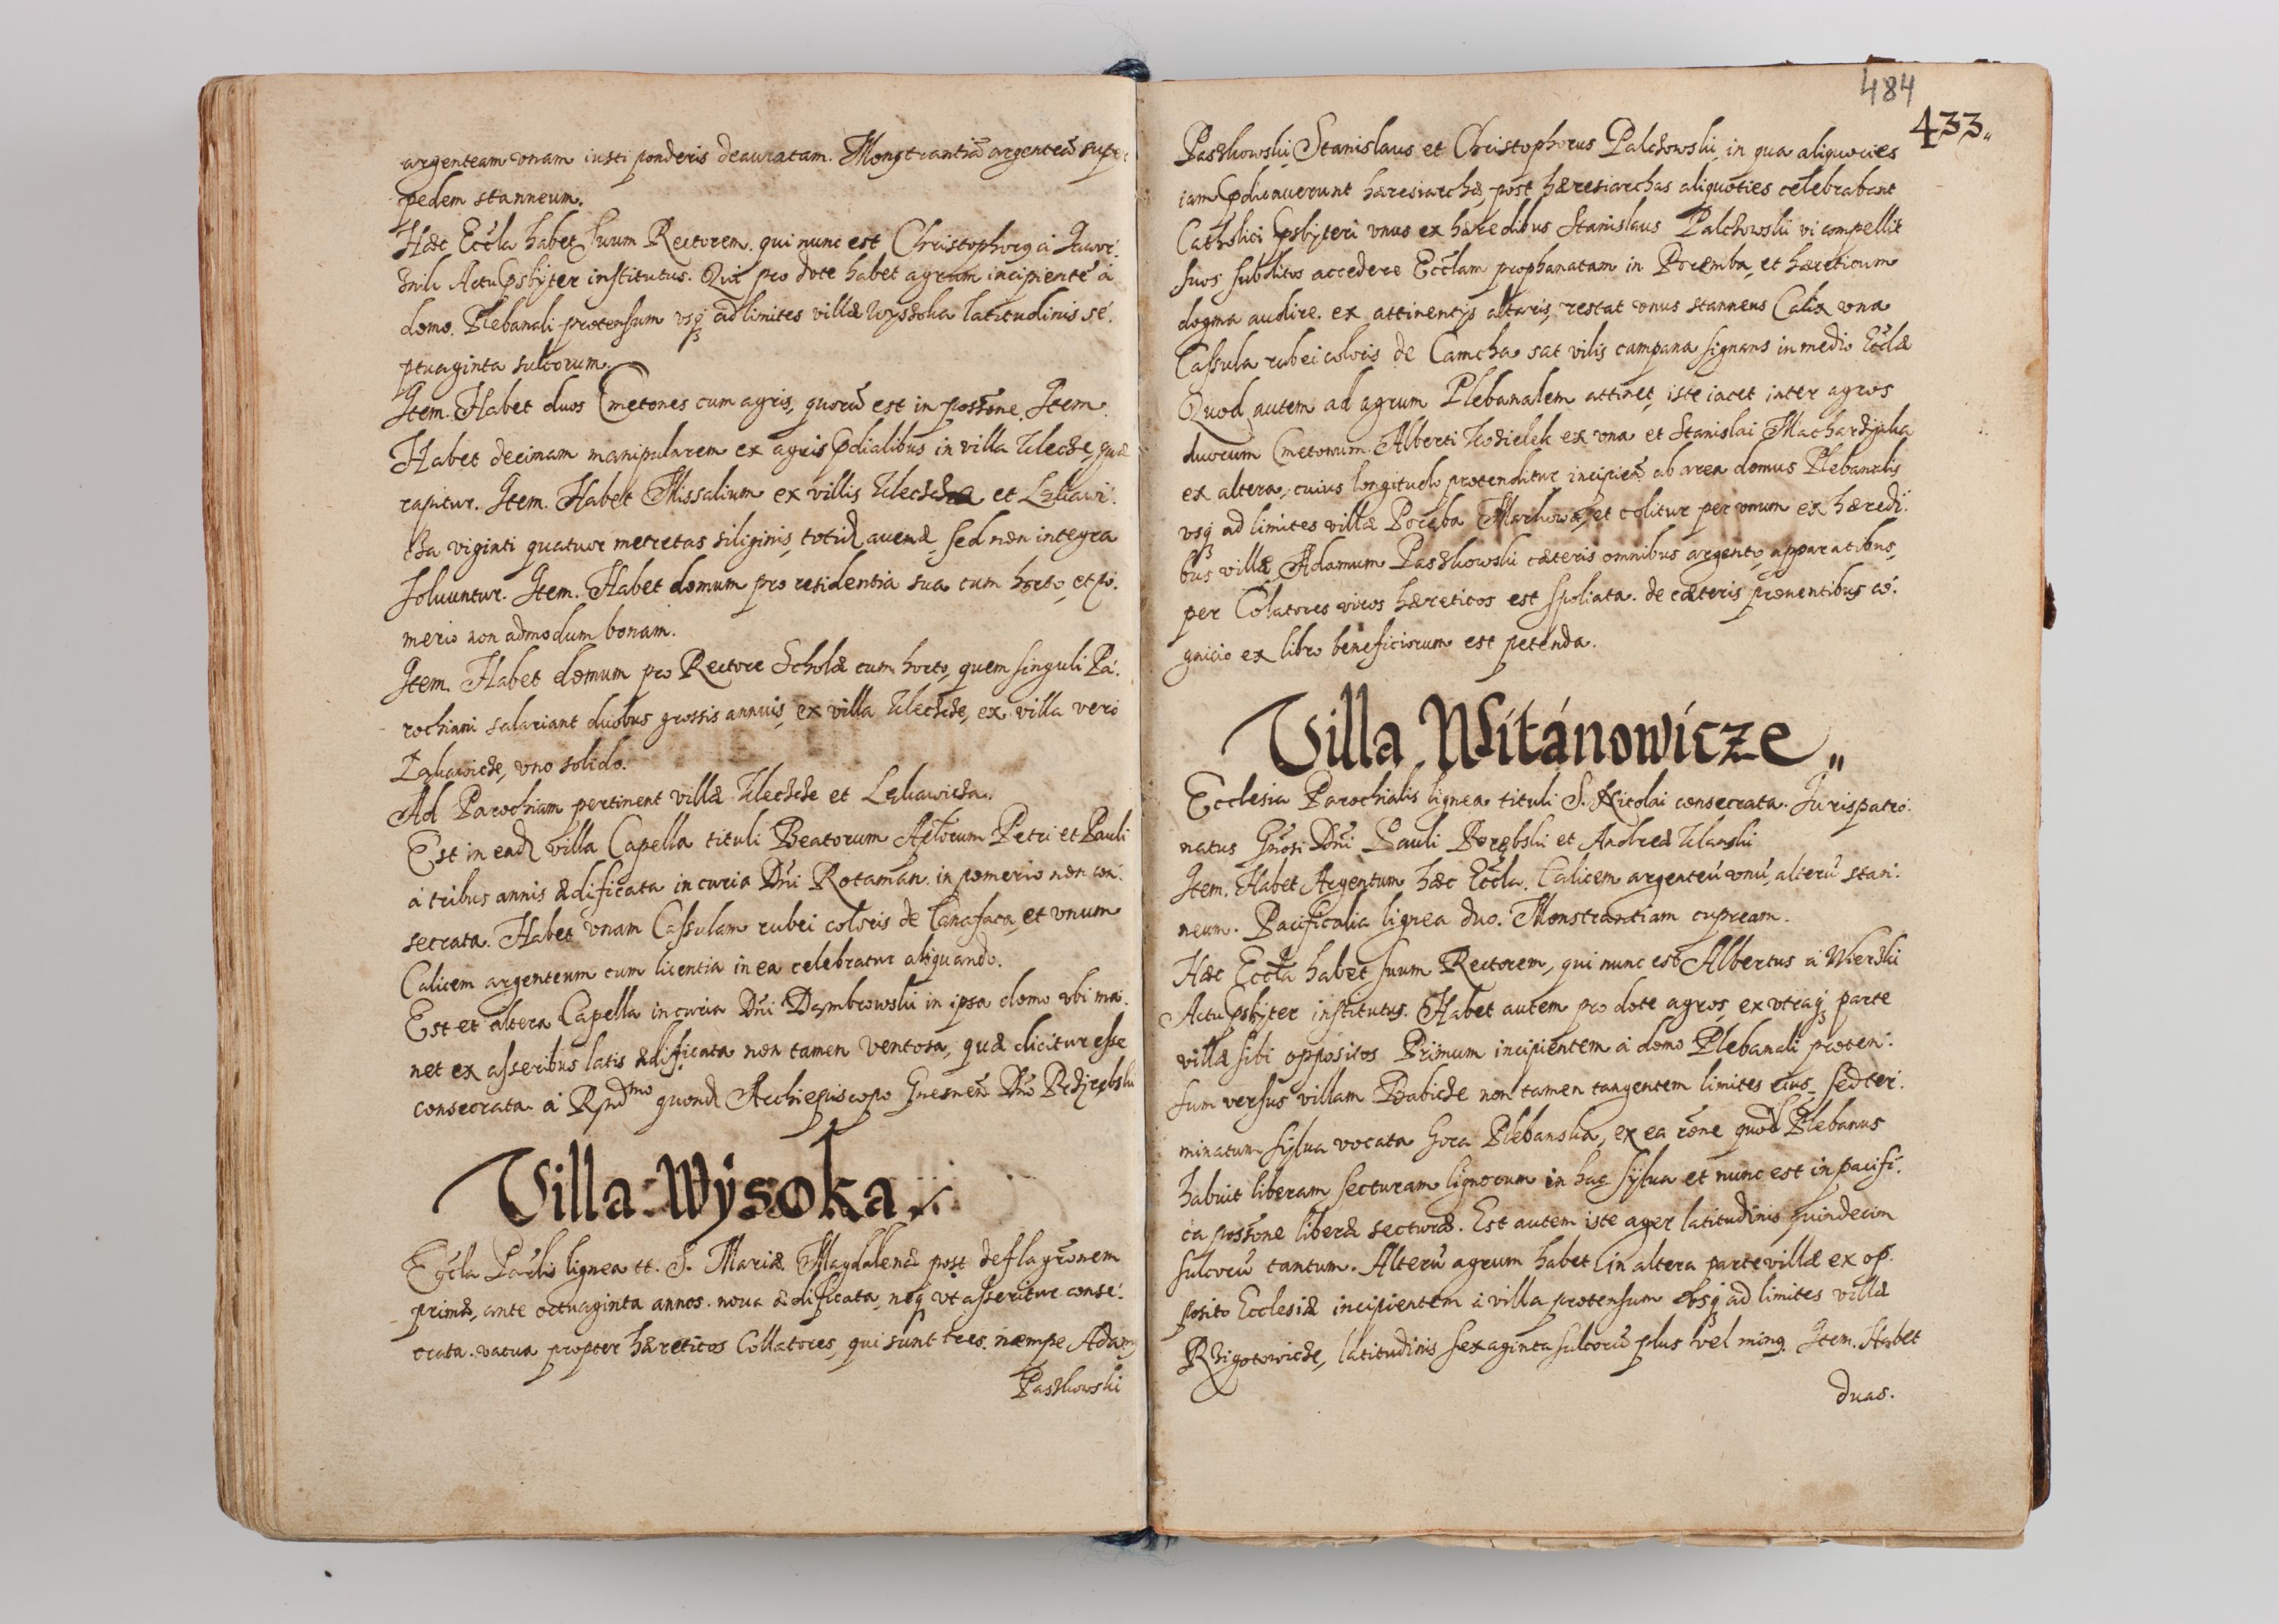 argenteam vnam iusti ponderis deauratam. Monstrantiā argenteā super
pedem stanneum.
Hæc Eccła habet suum Rectorem. qui nunc est Christophorꝰ à
Actu Psbyter institutus. Qui pro dote habet agrum incipientē à
domo. Plebanali protensum vsqꝫ ad limites villæ Wyssoka latitudinis se.
ptuaginta sulcorum.
Item. Habet duos Cmetones cum agris, quorū est in posśone. Item.
Habet decimam manipularem ex agris Pdialibus in villa Klecze, quæ
rapitur. Item. Habet Missalium ex villis et Lękawi.
cza viginti quatuor metretas siliginis, totid auenæ, sed non integra
soluuntur. Item. Habet domum pro residentia sua cum horto, et po.
merio non admodum bonam.
Item. Habet domum pro Rectore Scholæ cum horto, quem singuli Pa.
rochiani salariant duobus grossis annuis, ex villa Kleczcze, ex villa verò
Lękawicze, vno solido.
Ad Parochiam pertinent villæ Kleczcze et Lękawicza.
Est in ead villa Capella tituli Beatorum Aplorum Petri et Pauli
à tribus annis ædificata in curia Dni Rotaman. in pomerio non con.
secrata. Habet vnam Casulam rubei coloris de Canafaca, et vnum
Calicem argenteum cum licentia in ea celebratur aliquando.
Est et altera Capella in curia Dni Dąmbrowski in ipsa domo vbi ma.
net ex asseribus latis ædificata non tamen ventosa, quæ dicitur esse
consecrata. à Rndmo quond Archiepiscopo Gnesnen Dno Pdzrębski
Villa Wysoka
Eccla Parlis lignea tt. S. Mariæ Magdalenæ post deflagrōnem
primæ, ante octuaginta annos. noua ædificata, neqꝫ vt asseritur conse.
crata. vacua propter hæreticos Collatores, qui sunt tres. næmpe Adamꝰ
Paszkowski
484
433
Paszkowski, Stanislaus et Christophorus Palczowski, in qua aliquocies
iam Pdicauerunt hæresiarchæ, post hæresiarchas aliquoties celebrabant
Catholici Psbyteri vnus ex hæredibus Stanislaus Palczowski vi compellit
suos subditos accedere Ecclam prophanatam in Poremba, et hæreticum
dogma audire. ex attinentys altaris, restat vnus stanneus Calix vna
Casula rubei coloris de Camcha sat vilis campana signans in medio Ecclæ
Quod autem ad agrum Plebanalem attinet, iste iacet inter agros
duorum Cmetonum Alberti Kozielek ex vna et Stanislai
ex altera, cuius longitudo protenditur incipien ab area domus Plebanalis
vsqꝫ ad limites villæ Poręba Markowa, et colitur per vnum ex hæredi.
bus villæ Adamum Paszkowski cæteris omnibus argento, apparatibus,
per Colatores viros hæreticos est spoliata. de cæteris prouentibus co.
gnicio ex libro beneficiorum est petenda.
Villa Witánowicze
Ecclesia Parochialis lignea tituli S. Nicolai consecrata. Jurispatro.
natus Gnosi Dni Pauli Porębski et Andreæ
Item. Habet Argentum hæc Eccla. Calicem argenteū vnū, alterū stan.
neum. Pacificalia lignea duo. Monstrantiam cupream.
Hæc Eccla habet suum Rectorem, qui nunc est Albertus à
Actu Psbyter institutus. Habet autem pro dote agros, ex vtraqꝫ parte
villæ sibi oppositos. Primum incipientem à domo Plebanali proten.
sum versus villam Babicze non tamen tangentem limites eius, sed ter.
minatum sylua vocata Gora Plebanska, ex ea rōne quod Plebanus
habuit liberam secturam lignorum in hac sylua et nunc est in pacifi.
ca posśone liberæ secturæ. Est autem iste ager latitudinis quindecim
sulcorū tantum. Alterū agrum habet in altera parte villæ ex op.
posito Ecclesiæ incipientem à villa protensum vsqꝫ ad limites villæ
Rzigotwicze, latitudinis sexaginta sulcorū plus vel minꝰ. Item. Habet
duas.